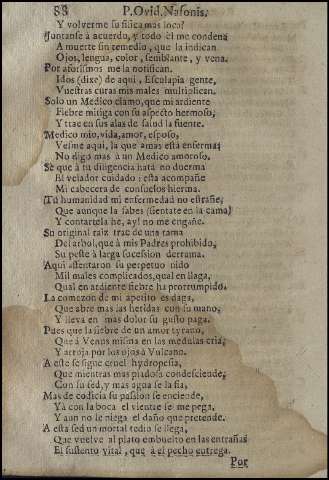 88 P. Ovid. Nasonis.
Y volverme su fisica mas loco?
Juntanse à acuerdo, y todo èl me condena
A muerte sin remedio, que la indican
Ojos, lengua, color, semblante, y vena.
Por aforismos me la notifican.
Idos (dixe) de aqui, Esculapia gente,
Vuestras curas mis males multiplican.
Solo un Medico clamo, que mi ardiente
Fiebre mitiga con su aspecto hermoso,
Y trae en sus alas de salud la fuente.
Medico mio, vida, amor, esposo,
Vesme aqui, la que amas està enferma;
No digo mas à un Medico amoroso.
Sè que à tu diligencia harà no duerma
El velador cuidado; esta acompañe
Mi cabecera de consuelos hierma.
Tu humanidad mi enfermedad no estrañe,
Que aunque la sabes (sientate en la cama)
Y contartela he, ay! no me engañe.
Su original raiz trae de una rama
Del arbol, que à mis Padres prohibido,
Su peste à larga sucession derrama.
Aqui assentaron su perpetuo nido
Mil males complicados, qual en llaga,
Qual en ardiente fiebre ha prorrumpido.
La comezon de mi apetito es daga,
Que abre mas las heridas con su mano,
Y lleva en mas dolor su gusto paga.
Pues que la fiebre de un amor tyrano,
Que à Venus misma en las medulas cria,
Y arroja por los ojos à Vulcano.
A este se sigue cruel hydropesia,
Que mientras mas piadosa condesciende,
Con su sed, y mas agua se la fia,
Mas de codicia su passion se enciende,
Yà con la boca el vientre se me pega,
Y aun no le niega el daño que pretende.
A esta sed un mortal tedio se llega,
Que vuelve al plato embuelto en las entrañas
El sustento vital, que à el pecho entrega.
Por